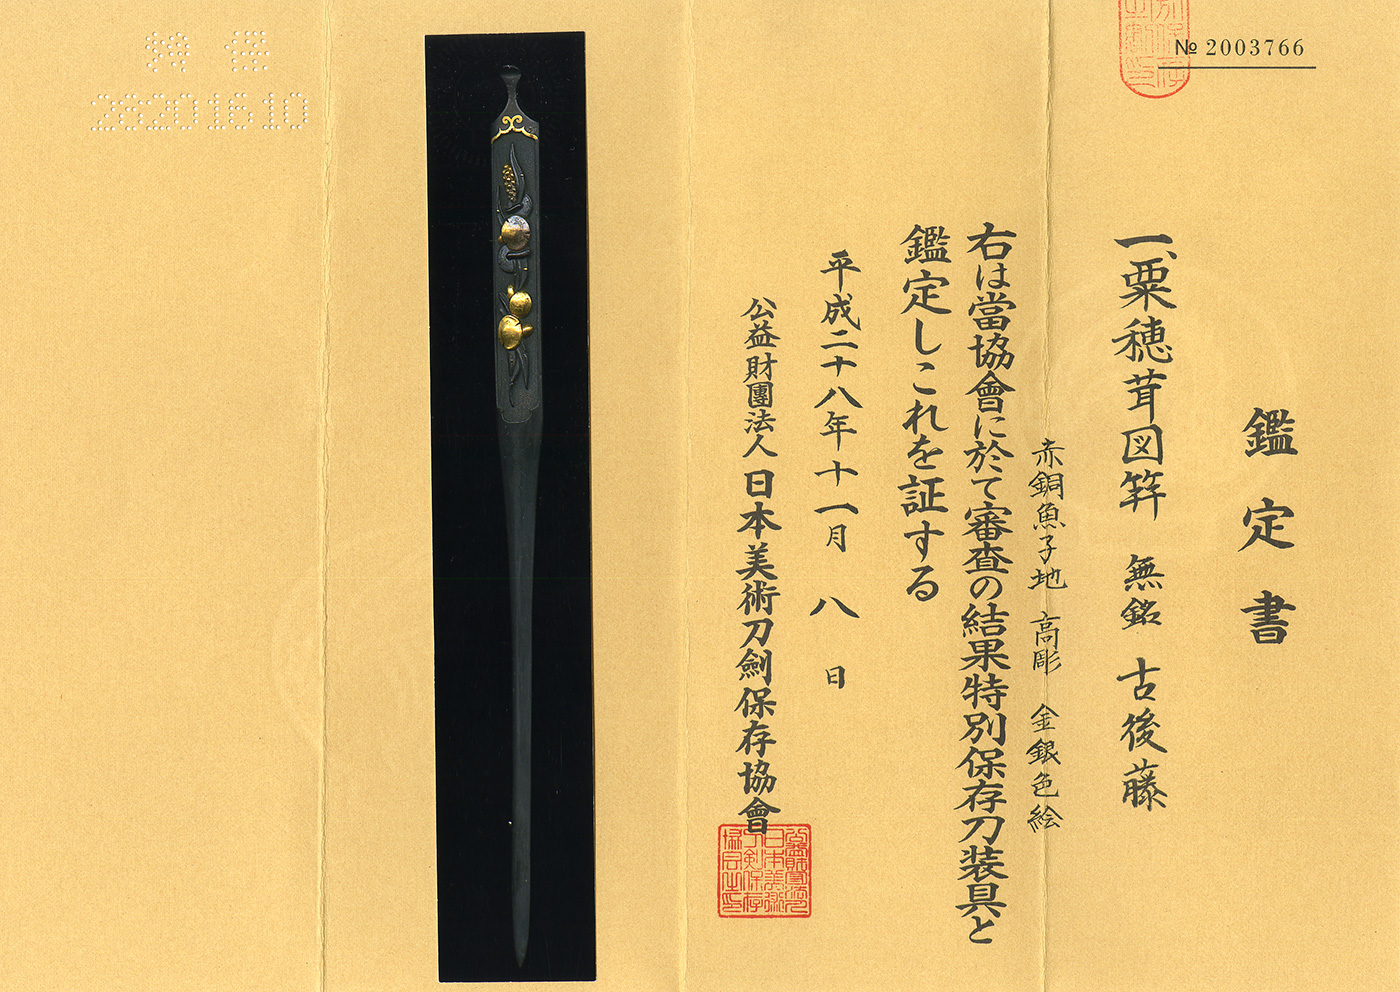 № 2003766
鑑定書
一、粟穂茸図笄 無銘 古後藤
赤銅魚子地 高彫 金銀色絵
右は當協會に於て審査の結果特別保存刀装具と
鑑定しこれを証する
平成二十八年十一月 八 日
公益財團法人 日本美術刀劍保存協會
28201610